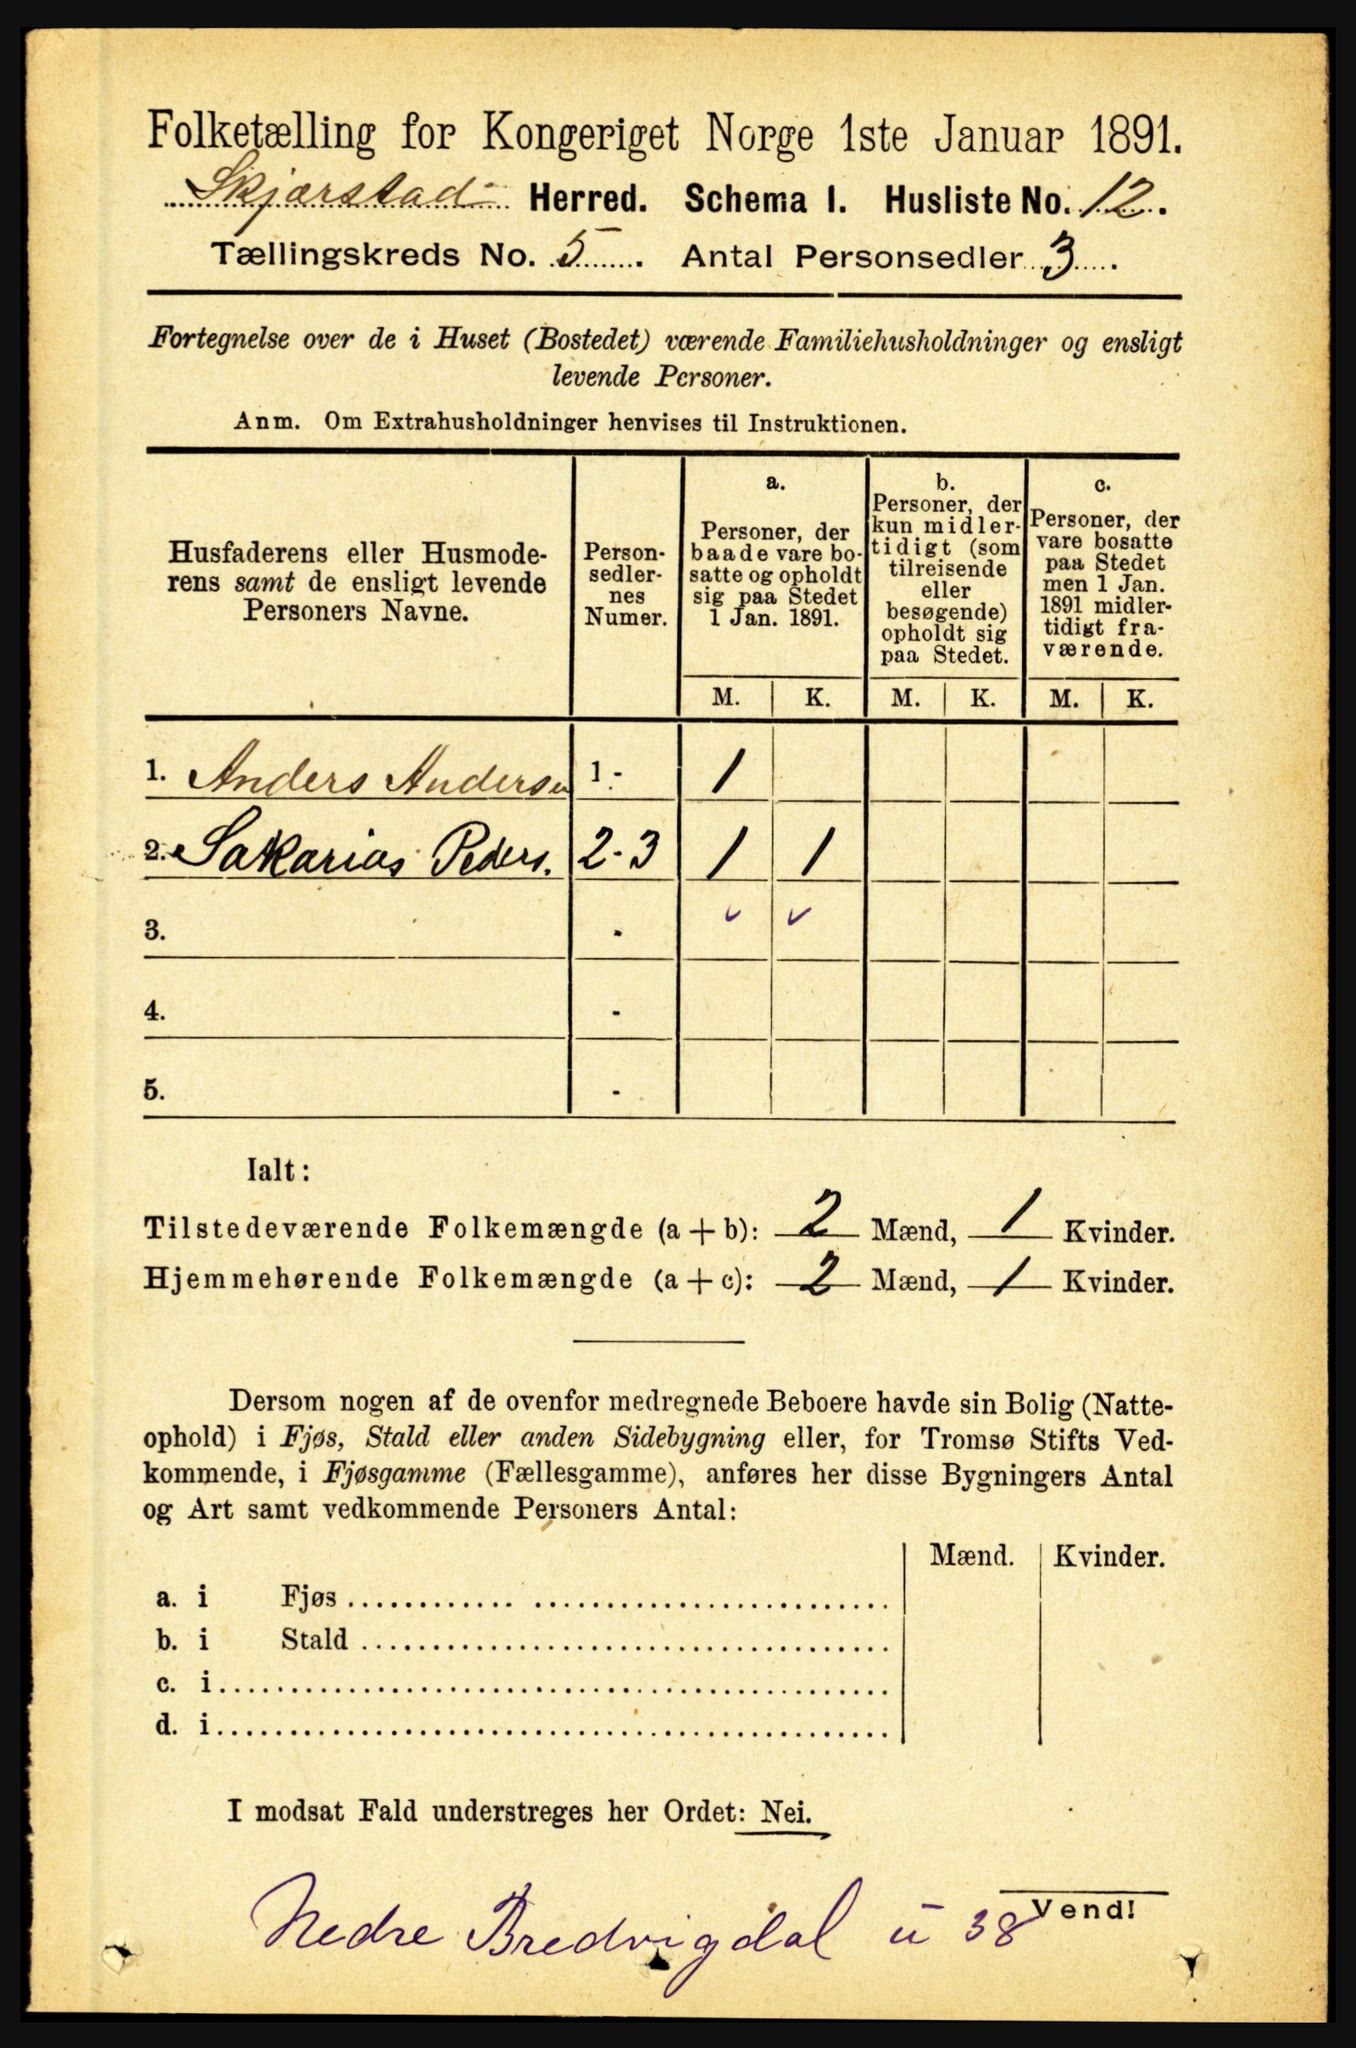 Folketælling for Kongeriget Norge 1ste Januar 1891.
Skjærstad Herred. Schema I. Husliste No. 12.
Tællingskreds No. 5. Antal Personsedler 3.
Fortegnelse over de i Huset (Bostedet) værende Familiehusholdninger og ensligt
levende Personer.
Anm. Om Extrahusholdninger henvises til Instruktionen.
Husfaderens eller Husmode-
rens samt de ensligt levende
Personers Navne.
Person-
sedler-
nes
Numer.
a.
Personer, der
baade vare bo-
satte og opholdt
sig paa Stedet
1 Jan. 1891.
b.
Personer, der
kun midler-
tidigt (som
tilreisende
eller
besøgende)
opholdt sig
paa Stedet.
c.
Personer, der
vare bosatte
paa Stedet
men 1 Jan.
1891 midler-
tidigt fra-
værende.
M. K. M. K. M. K.
1. Anders Andersen 1 - 1
2. Sakarias Peders. 2 - 3 1 1
3. -
4. -
5. -
Ialt:
Tilstedeværende Folkemængde (a + b): 2 Mænd, 1 Kvinder.
Hjemmehørende Folkemængde (a + c): 2 Mænd, 1 Kvinder.
Dersom nogen af de ovenfor medregnede Beboere havde sin Bolig (Natte-
ophold) i Fjøs, Stald eller anden Sidebygning eller, for Tromsø Stifts Ved-
kommende, i Fjøsgamme (Fællesgamme), anføres her disse Bygningers Antal
og Art samt vedkommende Personers Antal:
Mænd. Kvinder.
a. i Fjøs
b. i Stald
c. i
d. i
I modsat Fald understreges her Ordet: Nei.
Vend!
Nedre Bredvigdal u 38